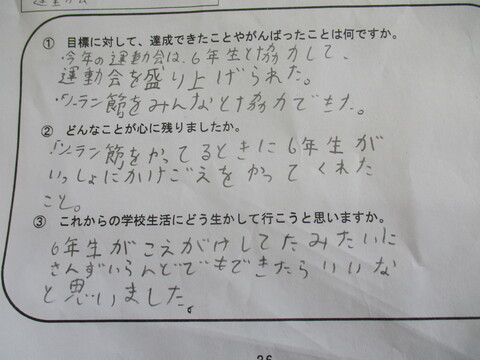 運動会
① 目標に対して、達成できたことやがんばったことは何ですか。
・今年の運動会は、6年生と協力して、
運動会を盛り上げられた。
・ソーラン節をみんなと協力できた。
② どんなことが心に残りましたか。
「ソーラン節をやってるときに6年生が
いっしょにかけごえをやってくれた
こと。
③ これからの学校生活にどう生かして行こうと思いますか。
6年生がこえがけしてたみたいに
さんずいらんどでもできたらいいな
と思いました。